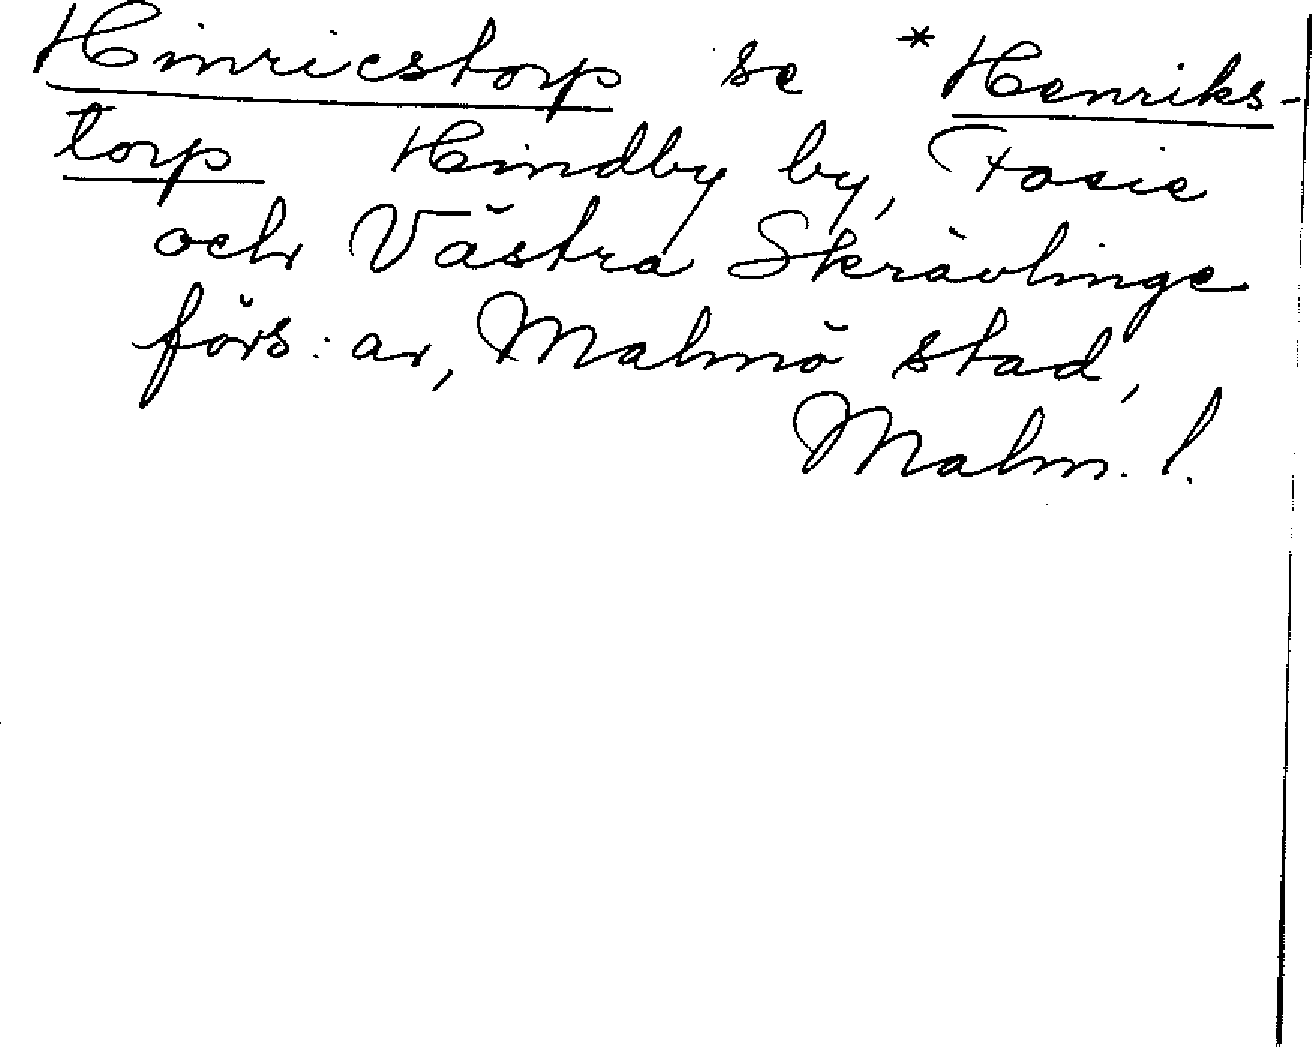 Hinricstorp se *Henriks-
torp Hindby by, Fosie
och Västra Skrävlinge
förs:ar, Malmö stad,
Malm. l.